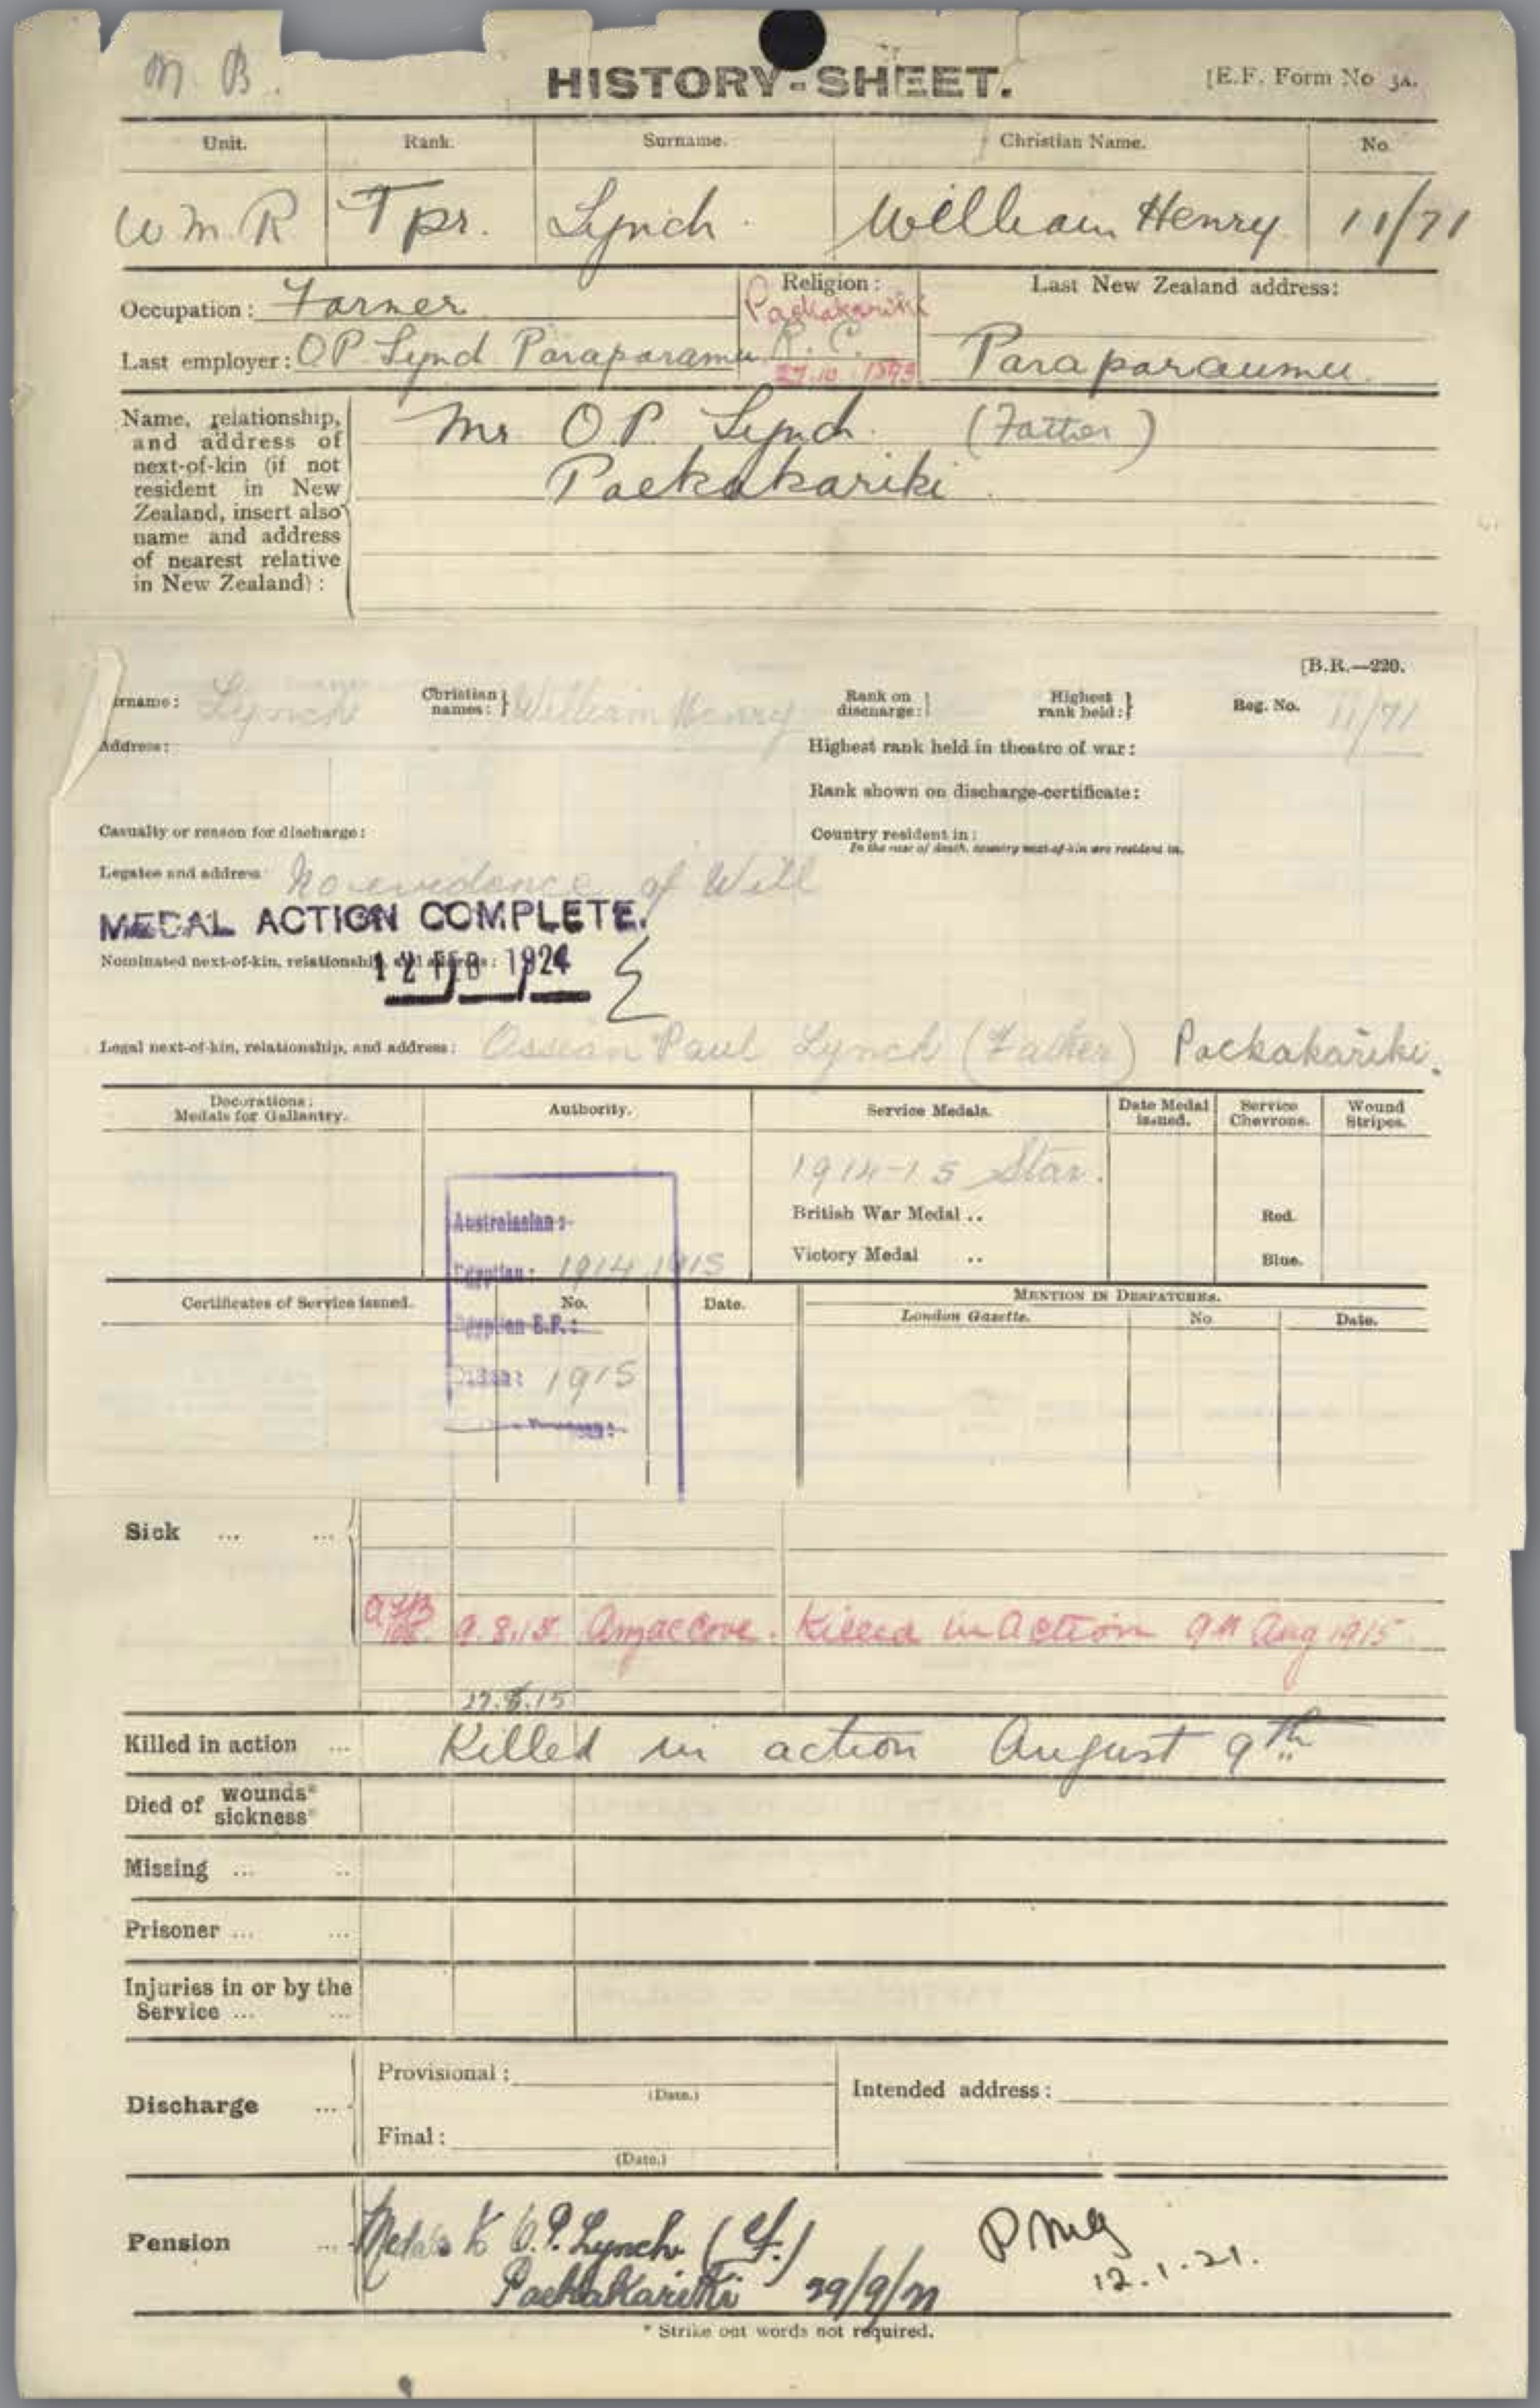 M. B.
HISTORY-SHEET.
[E.F. Form No 3A.
Unit. Rank. Surname. Christian Name. No
W M. R Tpr. Lynch. William Henry 11/71
Occupation: Farmer Religion: Last New Zealand address:
Paekakariki
R. C.
Last employer: O P Lynd Paraparamu 27.10 1893 Paraparaumu
Name, relationship, and address of next-of-kin (if not resident in New Zealand, insert also name and address of nearest relative in New Zealand):
Mr O.P. Lynch. (Father)
Paekakariki.
[B.R.—220.
rname: Lynch Christian names: William Henry Rank on discharge: Highest rank held: Reg. No. 11/71
Address: Highest rank held in theatre of war:
Rank shown on discharge-certificate:
Casualty or reason for discharge: Country resident in:
In the case of death, country next-of-kin are resident in.
Legatee and address No evidence of Will
MEDAL ACTION COMPLETE.
Nominated next-of-kin, relationship, and address:
12 FEB 1924
Legal next-of-kin, relationship, and address: Ossian Paul Lynch (Father) Paekakariki.
Decorations: Medals for Gallantry. Authority. Service Medals. Date Medal issued. Service Chevrons. Wound Stripes.
1914-15 Star.
Australasian:- British War Medal .. Red.
Egyptian: 1914 1915 Victory Medal .. Blue.
Certificates of Service issued. No. Date. MENTION IN DESPATCHES.
London Gazette. No Date.
Egyptian E.F.:
1915
Sick ... ...
9.8.15 Anzac Cove. Killed in action 9th Aug 1915
27.8.15
Killed in action ... Killed in action August 9th
Died of wounds* sickness*
Missing ... ..
Prisoner ... ...
Injuries in or by the Service ... ...
Discharge ... Provisional: (Date.) Intended address:
Final: (Date.)
Pension ... Medals to O.P. Lynch (f.)
Paekakariki 29/9/21
PMG
12.1.21.
* Strike out words not required.